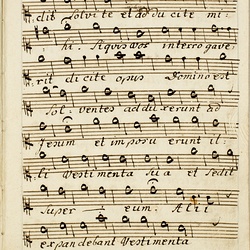 dit Solvite et ad du cite mi-
hi. Siquis vos interroga ve-
rit dicite opus Domino est
Sol. ventes ad du xerunt ad
Jesum et impo su erunt il-
li Vestimenta su a et sedit
super eum. Alii
expandebant Vestimenta